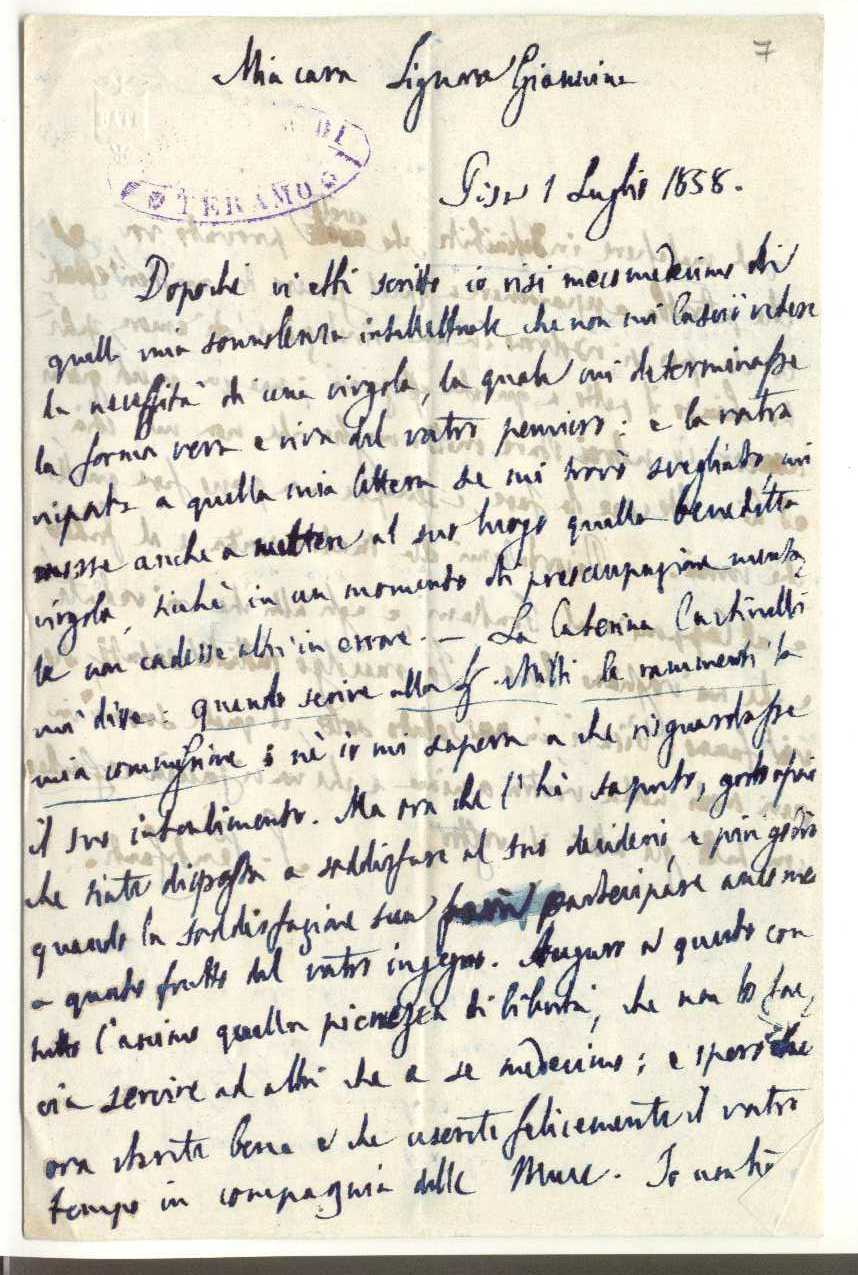 7
Mia cara Signora Giannina
DI
TERAMO
BATH
Pisa 1 Luglio 1858.
Dopoche vi ebbi scritto io risi meco medesimo di
quella mia sonnolenza intellettuale che non mi lasciò vedere
la necessità di una virgola, la quale mi determinasse
la forma vera e viva del vostro pensiero: e la vostra
risposta a quella mia lettera se mi trovò svegliato, mi
mosse anche a mettere al suo luogo quella benedetta
virgola, sichè in un momento di preoccupazione menta,
le non cadesse altri in errore. — La Caterina
mi dice: quando scrive alla Sig. Milli le rammenti la
mia commissione; nè io mi sapeva a che risguardasse
il suo intendimento. Ma ora che l'hò saputo, godo
che siate disposta a soddisfare al suo desiderio, e più godrò
quando la soddisfazione sua farà partecipare anco me
a questo frutto del vostro ingegno. Auguro a questo con
tutto l'animo quella pienezza di libertà, che non lo fac,
cia servire ad altri che a se medesimo; e spero che
ora starete bene e che userete felicemente il vostro
tempo in compagnia delle Muse. Io non hò